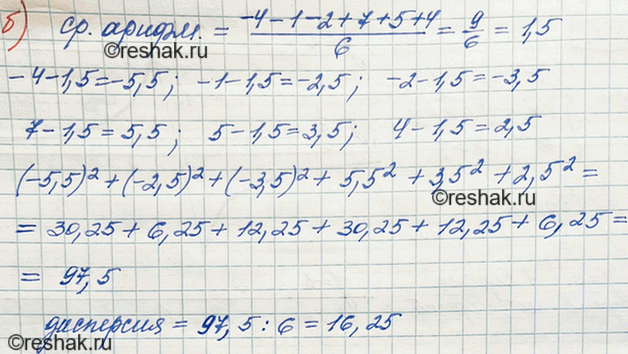 б) ср. арифм. = (-4-1-2+7+5+4)/6 = 9/6 = 1,5
©reshak.ru
-4-1,5=-5,5; -1-1,5=-2,5; -2-1,5=-3,5
7-1,5=5,5; 5-1,5=3,5; 4-1,5=2,5
(-5,5)²+(-2,5)²+(-3,5)²+5,5²+3,5²+2,5²=
©reshak.ru
=30,25+6,25+12,25+30,25+12,25+6,25=
=97,5
дисперсия=97,5:6=16,25
©reshak.ru